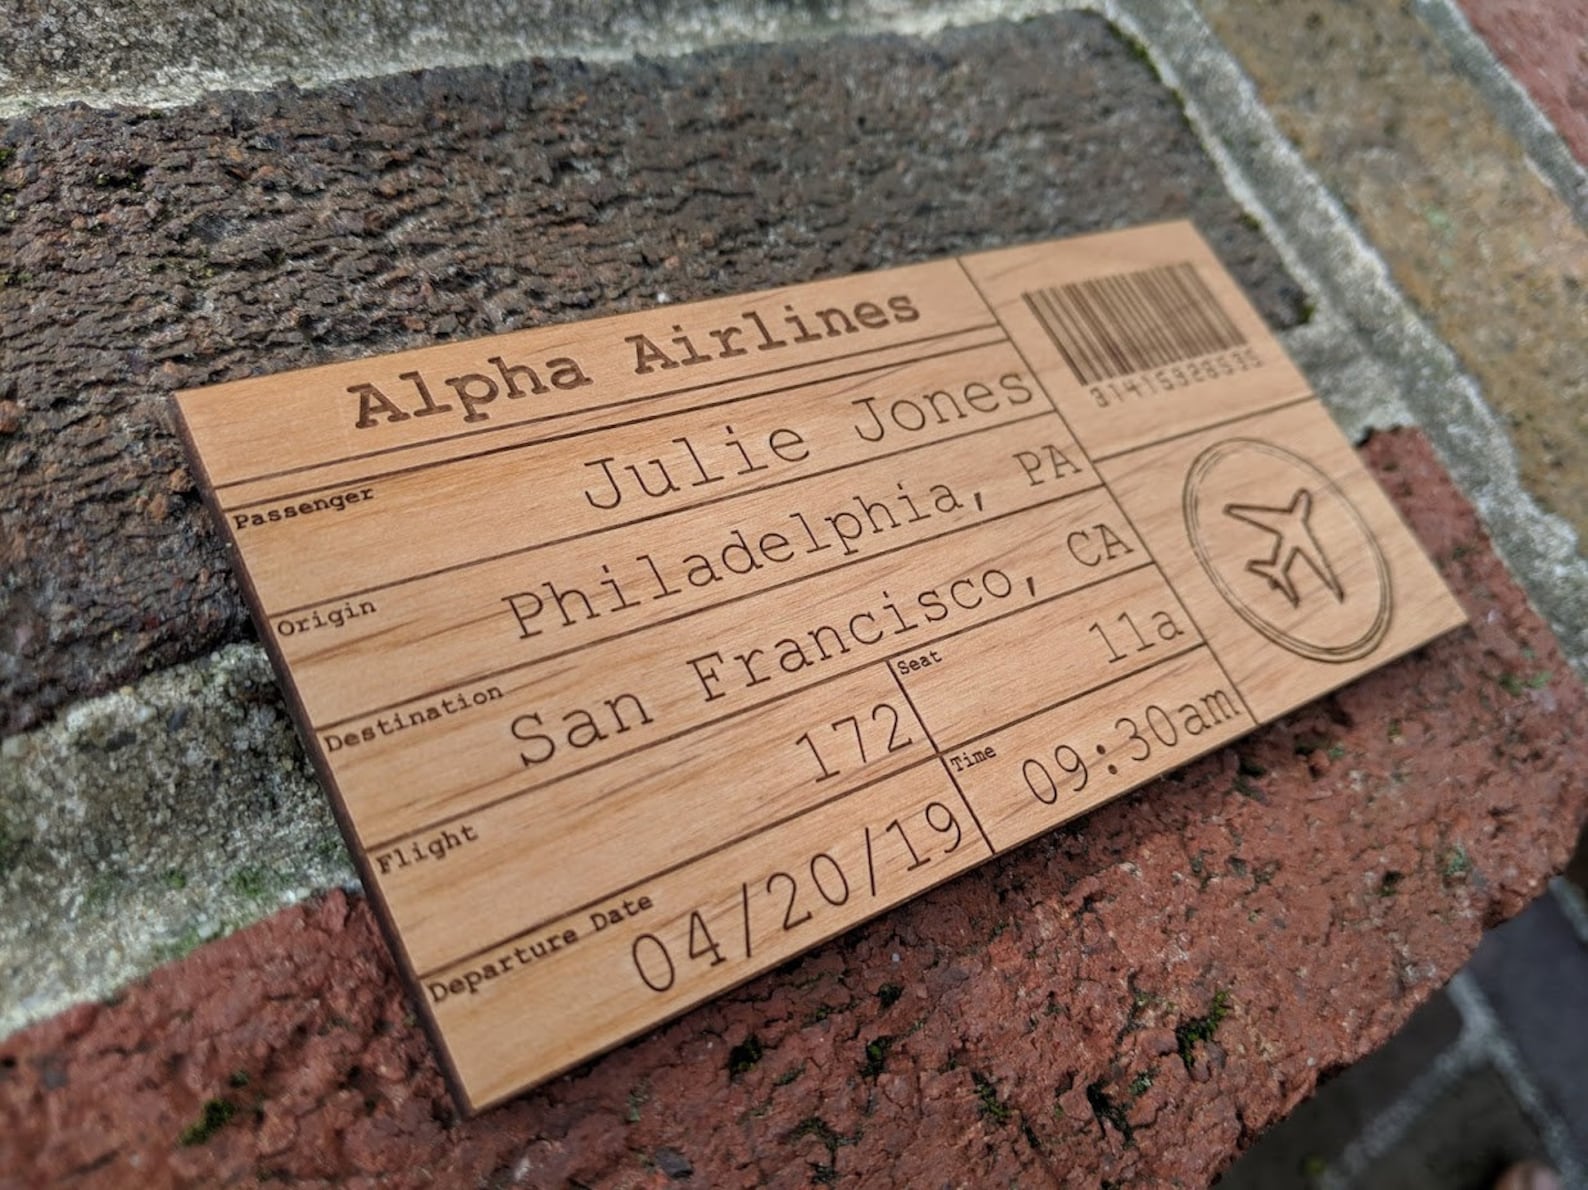 Alpha Airlines
Passenger
Julie Jones
Origin
Philadelphia, PA
Destination
San Francisco, CA
Flight
172
Seat
11a
Departure Date
04/20/19
Time
09:30am